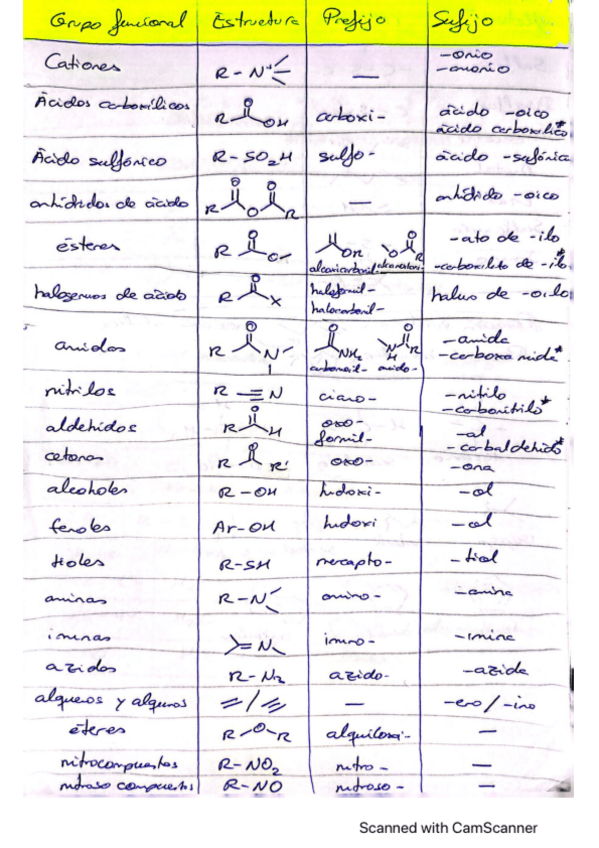 Grupo funcional Estructura Prefijo Sufijo
Cationes R-N⁺ — -onio
-amonio
Ácidos carboxílicos R O OH carboxi- ácido -oico
ácido carboxílico*
Ácido sulfónico R-SO₂H sulfo- ácido -sulfónico
anhídridos de ácido R O O O R — anhídrido -oico
ésteres R O O- O OR O O R -ato de -ilo
alcoxicarbonil- alcanoiloxi- -carboxilato de -ilo*
halogenuros de ácido R O X haloformil- haluro de -oilo
halocarbonil-
amidas R O N O NH₂ O N H R -amida
carbamoil- amido- -carboxamida*
nitrilos R ≡ N ciano- -nitrilo
-carbonitrilo*
aldehidos R O H oxo- -al
formil- -carbaldehido*
cetonas R O R' oxo- -ona
alcoholes R-OH hidroxi- -ol
fenoles Ar-OH hidroxi -ol
tioles R-SH mercapto- -tiol
aminas R-N amino- -amina
iminas =N imino- -imina
azidas R-N₃ azido- -azida
alquenos y alquinos = / ≡ — -eno/-ino
éteres R-O-R alquiloxi- —
nitrocompuestos R-NO₂ nitro- —
nitroso compuestos R-NO nitroso- —
Scanned with CamScanner